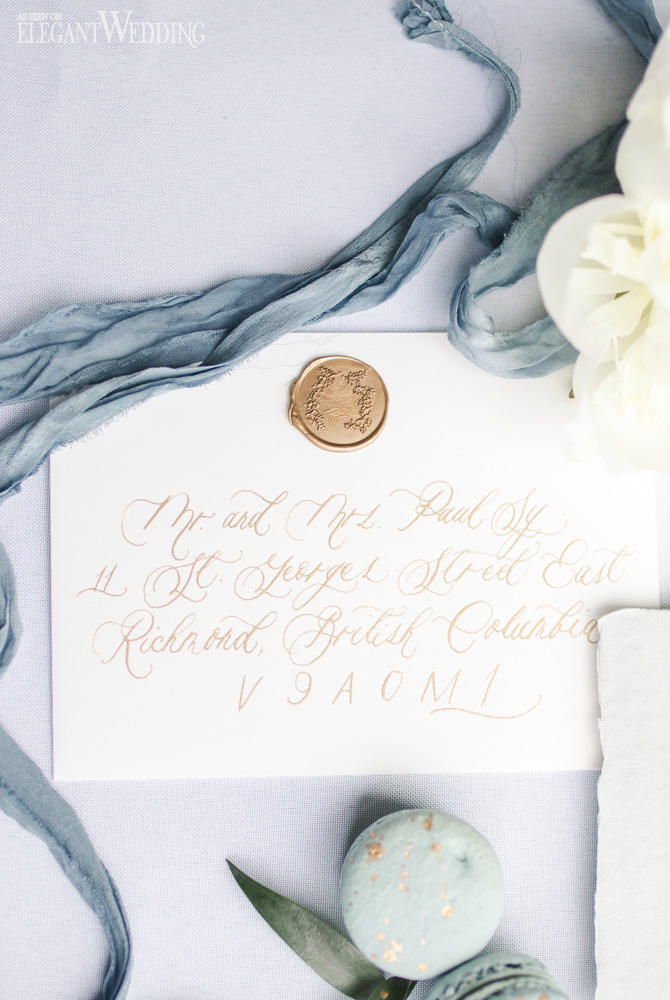 AS SEEN ON
ELEGANTWEDDING
Mr. and Mrs. Paul Sy
11 St. Georges Street East
Richmond, British Columbia
V 9 A 0 M 1